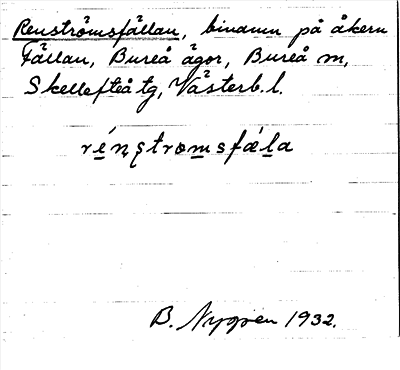 Renströmsfällan, binamn på åkern
Fällan, Bureå ägor, Bureå sn,
Skellefteå tg, Västerb. l.
B. Nygren 1932.